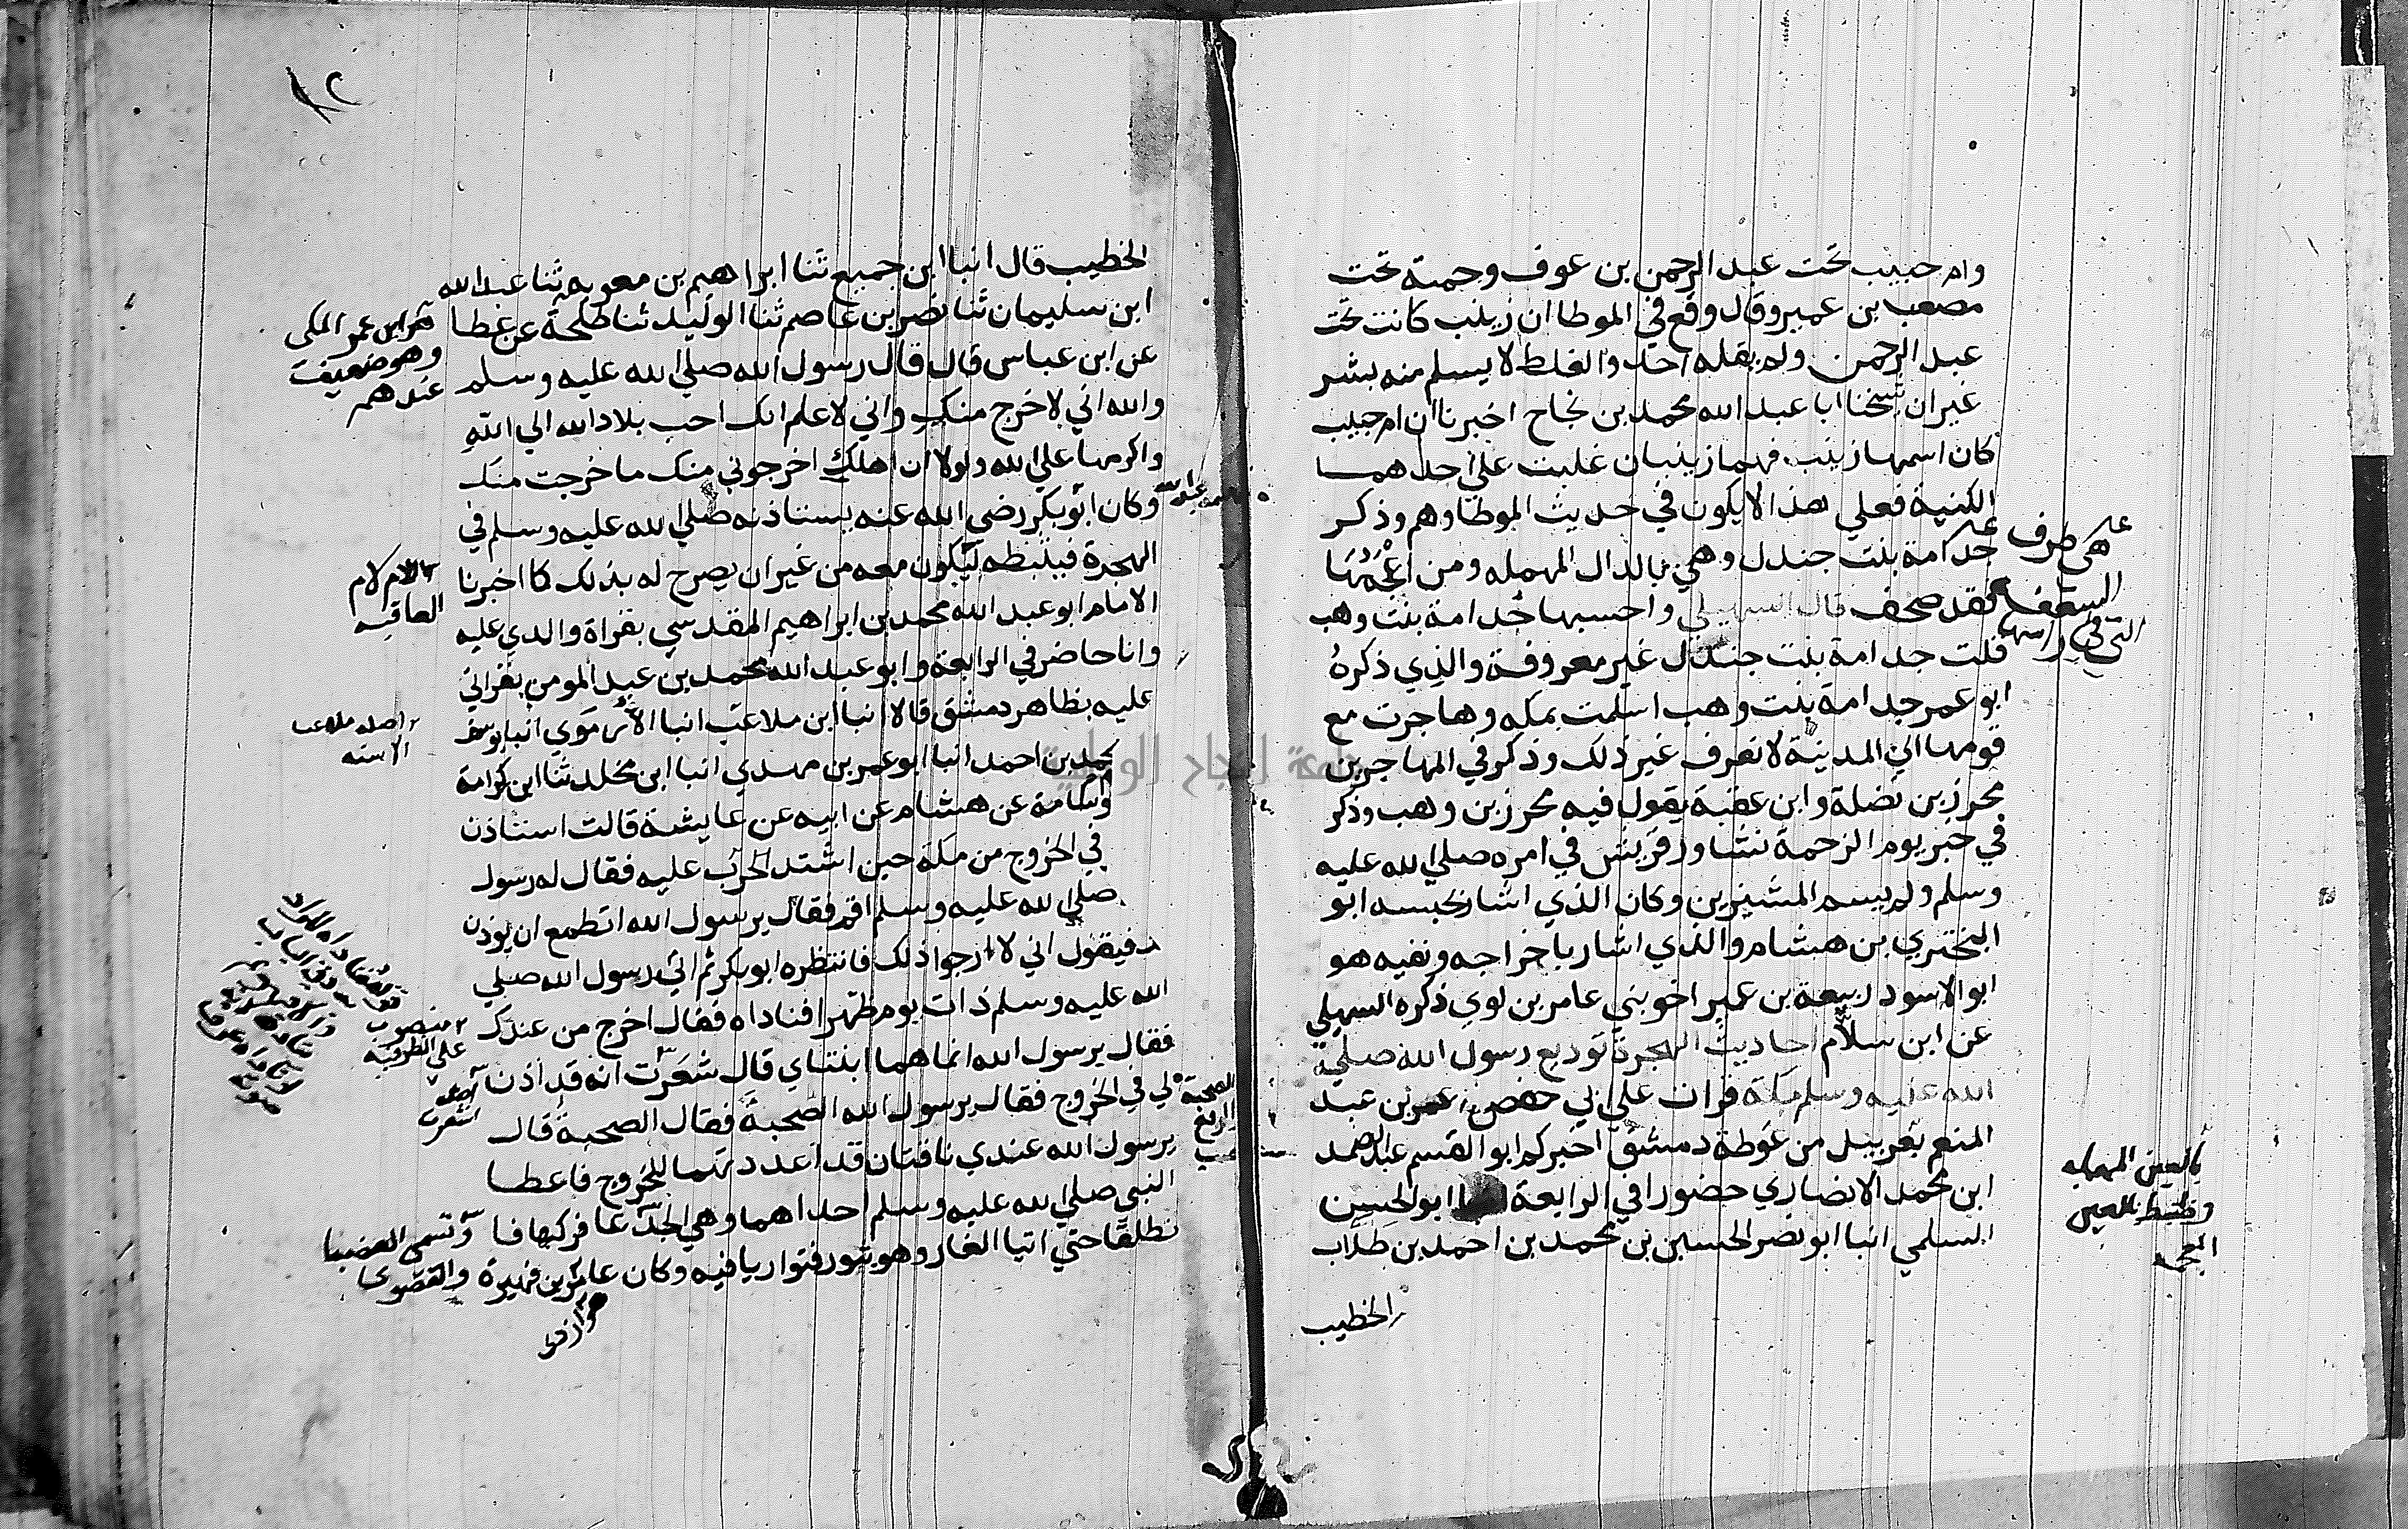 وام حبيب تحت عبد الرحمن بن عوف وحمنة تحت
مصعب بن عمير وقال وقع في الموطا ان زينب كانت تحت
عبد الرحمن ولم يقله احد والغلط لا يسلم منه بشر
غير ان شيخنا ابا عبد الله محمد بن نجاح اخبرنا ان ام حبيب
كان اسمها زينب فهما زينبان غلبت علي احداهمـــا
الكنية فعلي هذا لا يكون في حديث الموطا وهم وذكـر
جدامة بنت جندل وهي بالدال المهمله ومن اعجمها
فقد صحف قال السهيلي واحسبها جدامة بنت وهب
قلت جدامة بنت جندل غير معروفة والذي ذكره
ابو عمر جدامة بنت وهب اسلمت بمكه وهاجرت مع
قومها الي المدينة لا نعرف غير ذلك وذكر في المهاجرين
محرز بن نضلة وابن عقبة يقول فيه محرز بن وهب وذكر
في خبر يوم الزحمة تشاور قريش في امره صلي الله عليه
وسلم ولم يسم المشيرين وكان الذي اشار بحبسه ابو
البختري بن هشام والذي اشار باخراجه ونفيه هو
ابو الاسود ربيعة بن عمير اخو بني عامر بن لوي ذكره السهيلي
عن ابن سلام احاديث الهجرة توديع رسول الله صلي
الله عليه وسلم مكة قرات علي ابي حفص عمر بن عبد
المنعم بعربيل من غوطة دمشق اخبركم ابو القسم عبد الصمد
ابن محمد الانصاري حضورا في الرابعة ابو الحسين
السلمي انبا ابو نصر الحسين بن محمد بن احمد بن طلاب
الخطيب
هي طرف
السعفه
التي في راسها
بالعين المهمله
وضبط بالغين
المعجمه
الخطيب قال انبا ابن جميع ثنا ابراهيم بن معويه ثنا عبد الله
ابن سليمان ثنا نصر بن عاصم ثنا الوليد ثنا طلحة عن عطا
عن ابن عباس قال قال رسول الله صلي الله عليه وسلم
والله اني لاخرج منك واني لاعلم انك احب بلاد الله الي الله
واكرمها علي الله ولولا ان اهلك اخرجوني منك ما خرجت منك
وكان ابو بكر رضي الله عنه يستاذنه صلي الله عليه وسلم في
الهجرة فيثبطه ليكون معه من غير ان يصرح له بذلك كا اخبرنا
الامام ابو عبد الله محمد بن ابراهيم المقدسي بقراة والدي عليه
وانا حاضر في الرابعة وابو عبد الله محمد بن عبد المومن بقراتي
عليه بظاهر دمشق قالا انبا ابن ملاعب انبا الارموي انبا يوسف
محمد بن احمد انبا ابو عمر بن مهدي انبا ابن مخلد ثنا ابن كرامة
اسامة عن هشام عن ابيه عن عايشة قالت استاذن
في الخروج من مكة حين اشتد الحرب عليه فقال له رسول
صلي الله عليه وسلم اقم فقال يرسول الله اتطمع ان يوذن
فيقول اني لارجوا ذلك فانتظره ابو بكر ثم اتي رسول الله صلي
الله عليه وسلم ذات يوم ظهرا فناداه فقال اخرج من عندك
فقال يرسول الله انما هما ابنتاي قال شعرت انه قد اذن
لي في الخروج فقال يرسول الله الصحبة فقال الصحبة قال
يرسول الله عندي ناقتان قد اعددتهما للخروج فاعطـا
النبي صلي الله عليه وسلم احداهما وهي الجدعا فركبها فا
نطلقا حتي اتيا الغار وهو بثور فتواريا فيه وكان عامر بن فهيرة
هو ابن عمر المكي
وهو ضعيف
عندهم
اللام لام
العاقبه
اصله ملاعب
الاسنه
منصوب
على الظرفيه
اصله
اشعرت
وتسمى العضبا
والقصوى